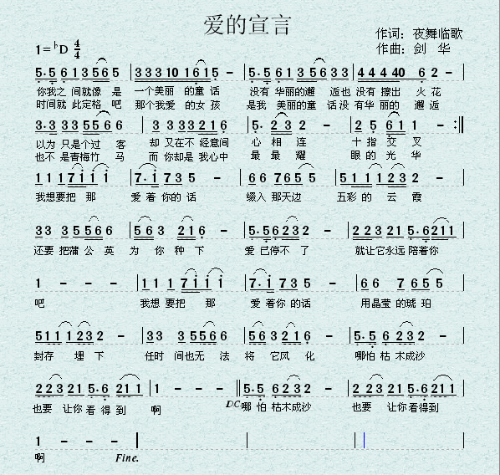 爱的宣言
作词：夜舞临歌
1=♭D 4/4
作曲：剑 华
5·5 6 1 3 5 6 5 | 3 3 3 1 0 1 6 1 5 - | 5·5 6 5 6 1 3 5 6 3 3 | 4 4 4 4 0 6 2 - |
你我之间就像 是 一个美丽 的童话 没有华丽的邂 逅也没有 擦出 火花
时间就此定格 吧 那个我爱 的女孩 是我 美丽的童话没有华丽 的 邂逅
3·3 3 3 5 5 6 6 | 3 3 3 5 5 6 6 6 | 5· 2 3 2 - | 2 5 6 1 1 - :‖
以为 只是个过 客 却 又在不 经意间 心 相 连 十 指 交 叉
也不 是青梅竹 马 而 你却是 我心中 最 最 耀 眼 的 光 华
1 1 1 7 1 1 1 | 7· 1 7 3 5 - | 6 6 7 6 5 5 - | 5 5 1 1 2 3 2 - |
我想要把 那 爱 着你的话 缀入 那天边 五彩的 云 霞
3 3 3 5 5 6 6 | 5 6 3 2 1 6 - | 5·5 6 2 3 2 - | 2 2 3 2 1 5·6 2 1 1 |
还要 把蒲公英 为 你 种 下 爱 已停不 了 就让它永远 陪着你
1 - - - | 1 1 1 7 1 1 1 | 7· 1 7 3 5 - | 6 6 7 6 5 5 - |
吧 我想要把 那 爱 着你 的话 用晶莹 的琥珀
5 1 1 1 2 3 2 - | 3 3 3 5 5 6 6 | 5 6 3 2 1 6 - | 5·5 6 2 3 2 - |
封存 埋 下 任时 间也无 法 将 它风 化 哪怕 枯 木成沙
2 2 3 2 1 5·6 2 1 1 | 1 - - - ‖ 5·5 6 2 3 2 - | 2 2 3 2 1 5·6 2 1 1 |
也要 让你看得到 啊 DC 哪 怕 枯木成沙 也要 让你看得到
1 - - -
啊 Fine.